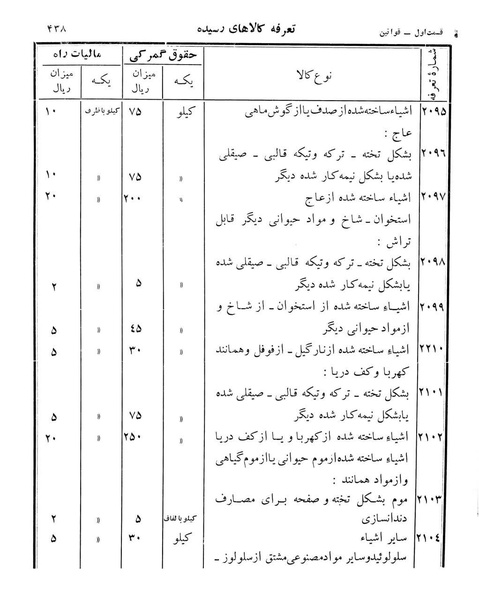 قسمت اول ـ قوانین تعرفه کالاهای رسیده ۴۳۸
شمارهٔ تعرفه نوع کالا حقوق گمرکی مالیات راه
یکه میزان ریال یکه میزان ریال
۲۰۹۵ اشیاء ساخته شده از صدف یا از گوش ماهی کیلو ۷۵ کیلو با ظرف ۱۰
عاج :
۲۰۹۶ بشکل تخته ـ ترکه وتیکه قالبی ـ صیقلی
شده یا بشکل نیمه کار شده دیگر » ۷۵ » ۱۰
۲۰۹۷ اشیاء ساخته شده ازعاج » ۲۰۰ » ۲۰
استخوان ـ شاخ و مواد حیوانی دیگر قابل
تراش :
۲۰۹۸ بشکل تخته ـ ترکه وتیکه قالبی ـ صیقلی شده
یا بشکل نیمه کار شده دیگر » ۵ » ۲
۲۰۹۹ اشیاء ساخته شده از استخوان ـ از شاخ و
ازمواد حیوانی دیگر » ۴۵ » ۵
۲۲۱۰ اشیاء ساخته شده ازنارگیل ـ ازفوفل وهمانند » ۳۰ » ۵
کهربا وکف دریا :
۲۱۰۱ بشکل تخته ـ ترکه وتیکه قالبی ـ صیقلی شده
یابشکل نیمه کار شده دیگر » ۷۵ » ۵
۲۱۰۲ اشیاء ساخته شده ازکهربا و یا ازکف دریا » ۲۵۰ » ۲۰
اشیاء ساخته شده ازموم حیوانی یا ازموم گیاهی
وازمواد همانند :
۲۱۰۳ موم بشکل تخته و صفحه برای مصارف
دندانسازی کیلو با لفاف ۵ » ۲
۲۱۰۴ سایر اشیاء کیلو ۳۰ » ۵
سلولوئید وسایر موادمصنوعی مشتق ازسلولوز ـ